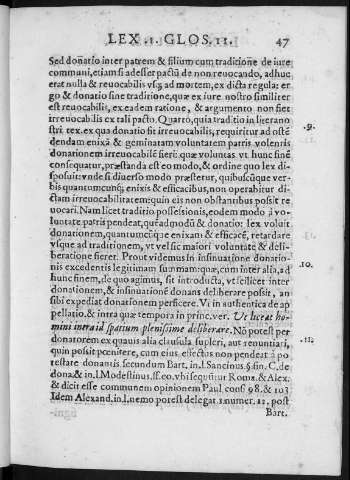 LEX .1. GLOS. 11. 47
Sed donatio inter patrem & filium cum traditione de iure
communi, etiam si adesset pactũ de non revocando, adhuc
erat nulla & revocabilis vsq; ad mortem, ex dicta regula: er
go & donatio sine traditione, quæ ex iure nostro similiter
est revocabilis, ex eadem ratione, & argumento non fiet
irrevocabilis ex tali pacto. Quarto, quia traditio in literano
stri tex. ex qua donatio fit irrevocabilis, requiritur ad ostẽ
dendam enixã & geminatam voluntatem patris volentis
donationem irrevocabilẽ fieri: quæ voluntas vt hunc finẽ
consequatur, præstanda est eo modo, & ordine quo lex di-
sposuit: vnde si diverso modo præstetur, quibuscũque ver-
bis quantumcunq; enixis & efficacibus, non operabitur di-
ctam irrevocabilitatem: quin eis non obstantibus possit re
vocari. Nam licet traditio possessionis, eodem modo à vo-
luntate patris pendeat, quẽadmodũ & donatio: lex voluit
donationem, quantumcũque enixam & efficacẽ, retardare
vsque ad traditionem, vt vel sic maiori voluntate & deli-
beratione fieret. Prout videmus in insinuatione donatio-
nis excedentis legitimam summam: quæ, cum inter alia, ad
hunc finem, de quo agimus, sit introducta, vt scilicet inter
donationem, & insinuationẽ donans deliberare possit, an
sibi expediat donationem perficere. Vt in authentica de ap
pellatio. & intra quæ tempora in princ. ver. Vt liceat ho-
mini intra id spatium plenissime deliberare. Nõ potest per
donatorem ex quauis alia clausula suppleri, aut renuntiari,
quin possit pœnitere, cum eius effectus non pendeat à po
testate donantis secundum Bart. in. l. Sancimus. §. sin. C. de
dona. & in. l. Modestinus. ff. eo. vbi sequũtur Roma. & Alex.
& dicit esse communem opinionem Paul cons. 98. & 103
Idem Alexand. in. l. nemo potest delegat. 1. numer. 12. post
Bart.
.9.
10.
.11.